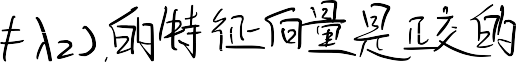 ≠λ2)的特征向量是正交的